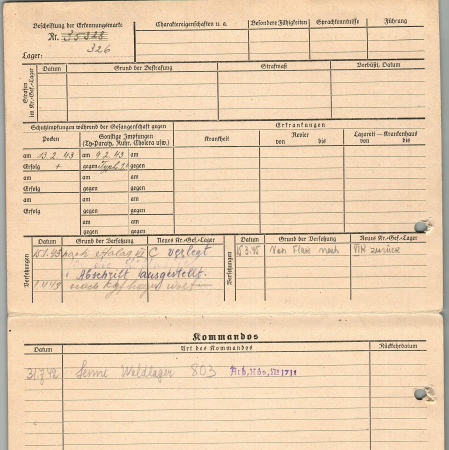 Beschriftung der Erkennungsmarke
Nr. 35328
326
Lager:
Charaktereigenschaften u. a.
Besondere Fähigkeiten
Sprachkenntnisse
Führung
Strafen im Kr.-Gef.-Lager
Datum
Grund der Bestrafung
Strafmaß
Verbüßt, Datum
Schutzimpfungen während der Gefangenschaft gegen
Pocken
Sonstige Impfungen
(Ty-Paraty, Ruhr, Cholera usw.)
Erkrankungen
Krankheit
Revier
von bis
Lazarett – Krankenhaus
von bis
am 13.2.43 am 9.2.43 am
Erfolg + gegen gegen
am am am
Erfolg gegen gegen
am am am
Erfolg gegen gegen
am am
gegen gegen
Versetzungen
Datum
Grund der Versetzung
Neues Kr.-Gef.-Lager
nach VI C verlegt
Abschrift ausgestellt.
nach
Versetzungen
Datum
Grund der Versetzung
Neues Kr.-Gef.-Lager
von nach
zurück
Kommandos
Datum
Art des Kommandos
Rückkehrdatum
31.7.42 Senne Waldlager 803